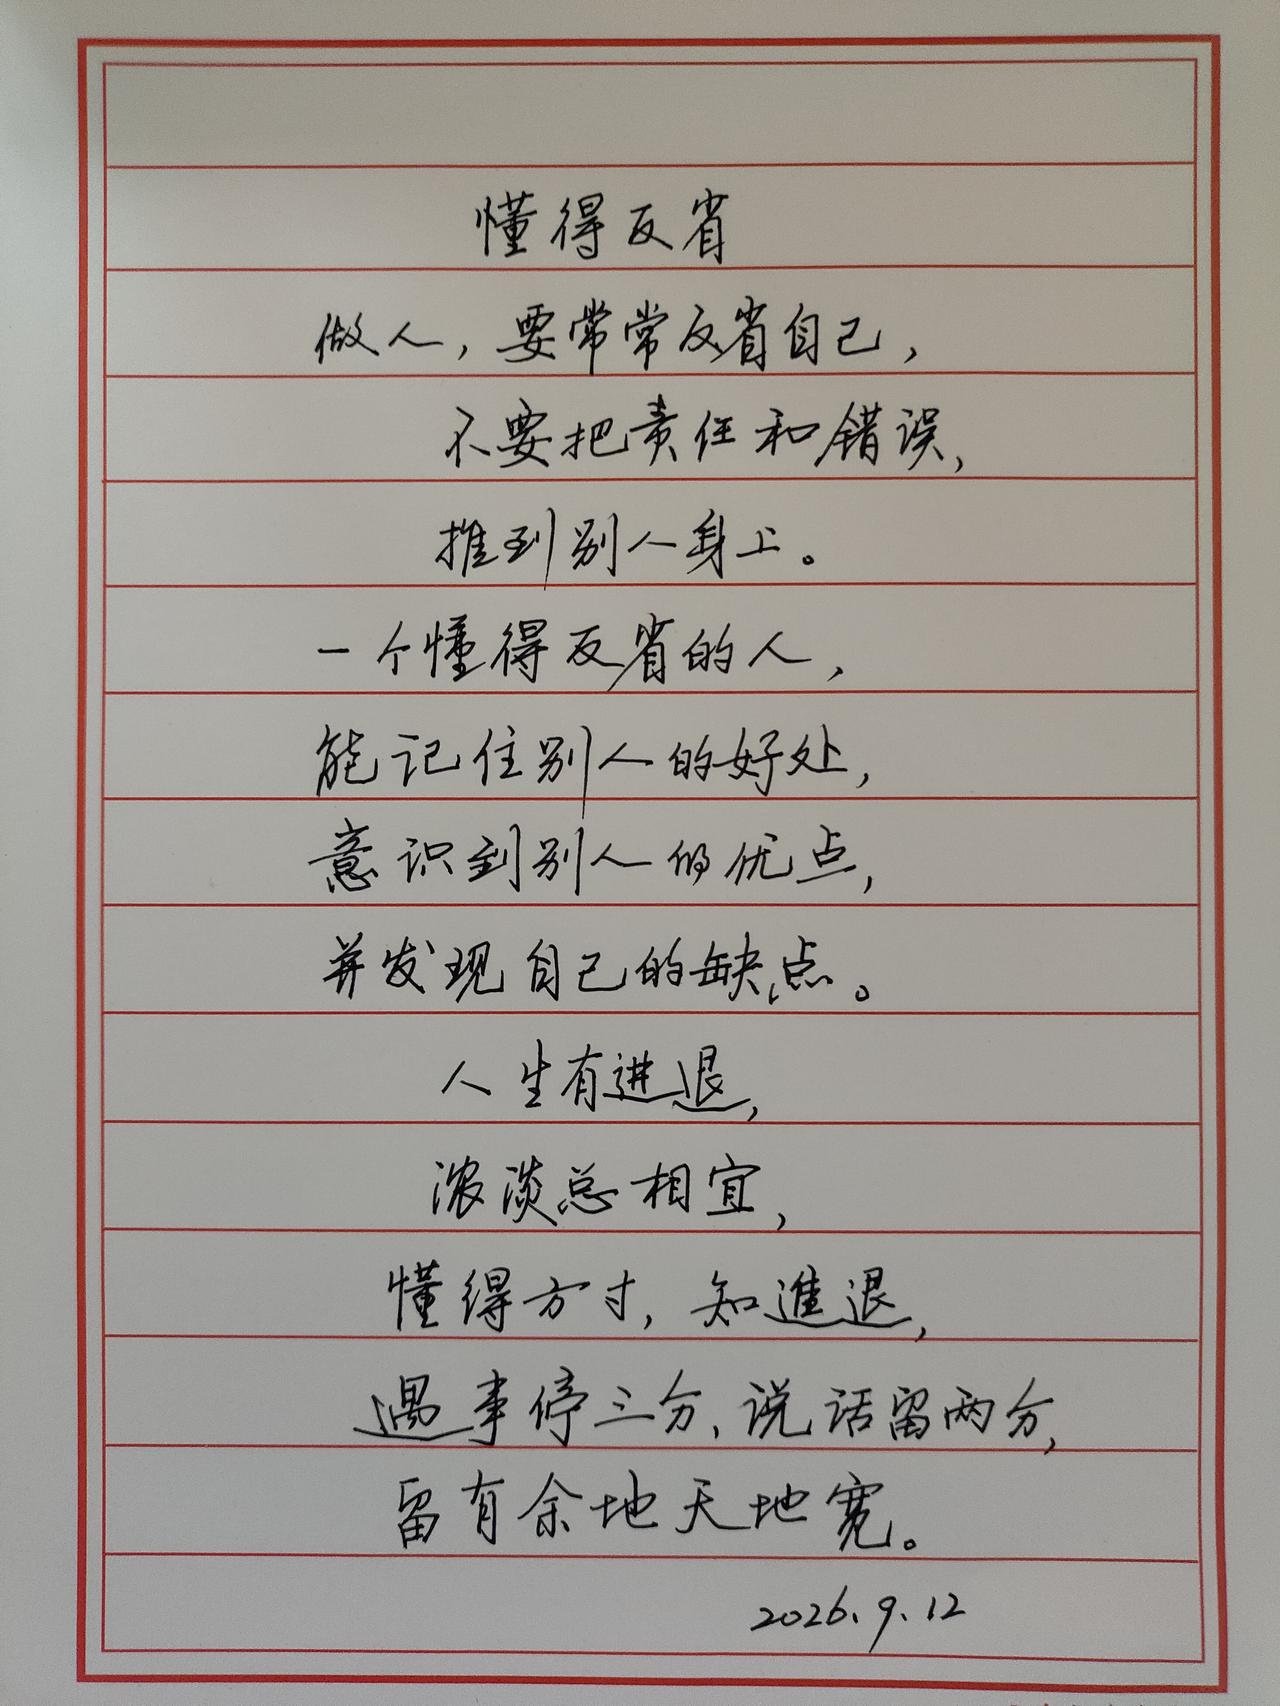 懂得反省
做人，要常常反省自己，
不要把责任和错误，
推到别人身上。
一个懂得反省的人，
能记住别人的好处，
意识到别人的优点，
并发现自己的缺点。
人生有进退，
浓淡总相宜，
懂得方寸，知進退，
遇事停三分、说话留两分，
留有余地天地宽。
2026.9.12